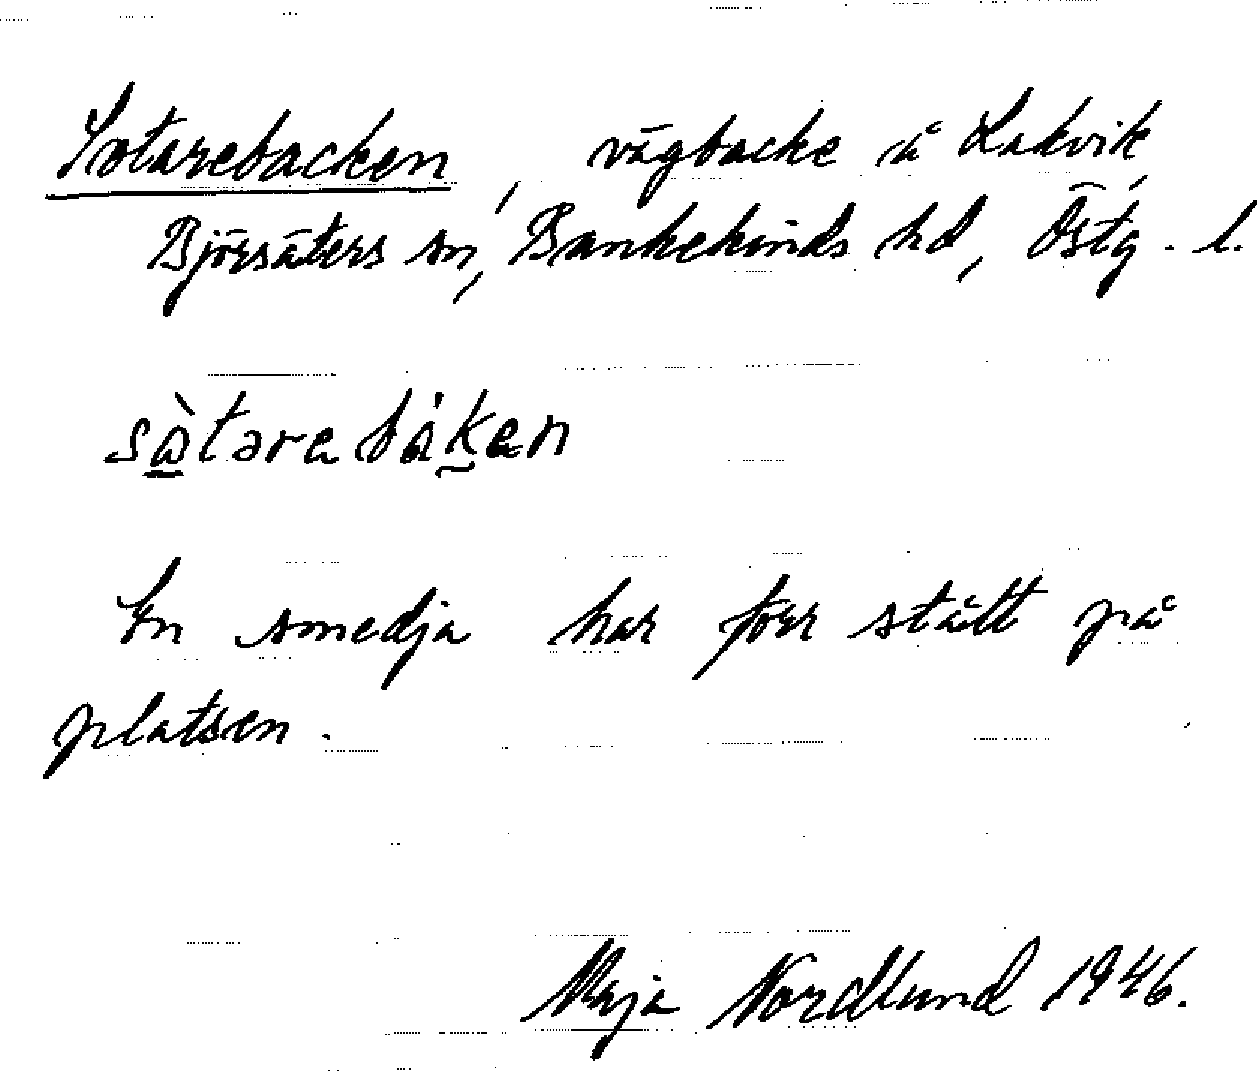 Sotarebacken, vägbacke å Lakvik,
Björsäters sn, Bankekinds hd, Östg. l.
sàtarebáken
En smedja har förr stått på
platsen.
Maja Nordlund 1946.